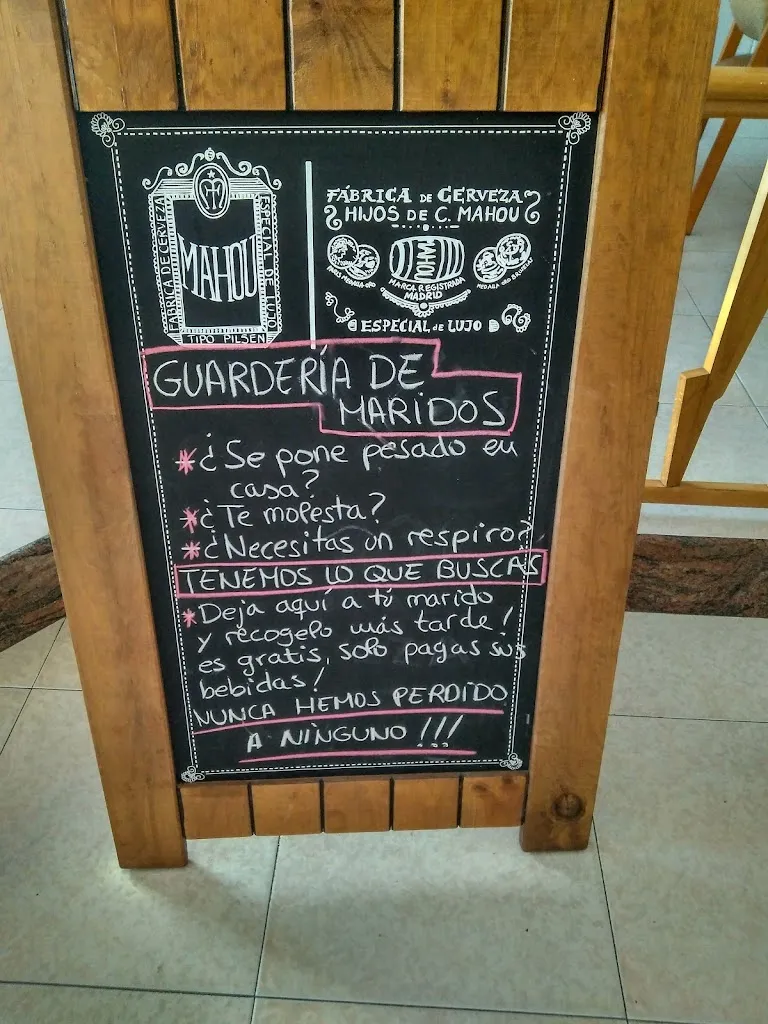 FÁBRICA DE CERVEZA
MAHOU
ESPECIAL DE LUJO
TIPO PILSEN
FÁBRICA DE CERVEZA
HIJOS DE C. MAHOU
MARCA REGISTRADA
MADRID
ESPECIAL DE LUJO
GUARDERÍA DE
MARIDOS
* ¿Se pone pesado en
casa?
* ¿Te molesta?
* ¿Necesitas un respiro?
TENEMOS LO QUE BUSCAS
* Deja aquí a tú marido
y recogelo más tarde!
es gratis, solo pagas sus
bebidas!
NUNCA HEMOS PERDIDO
A NINGUNO!!!